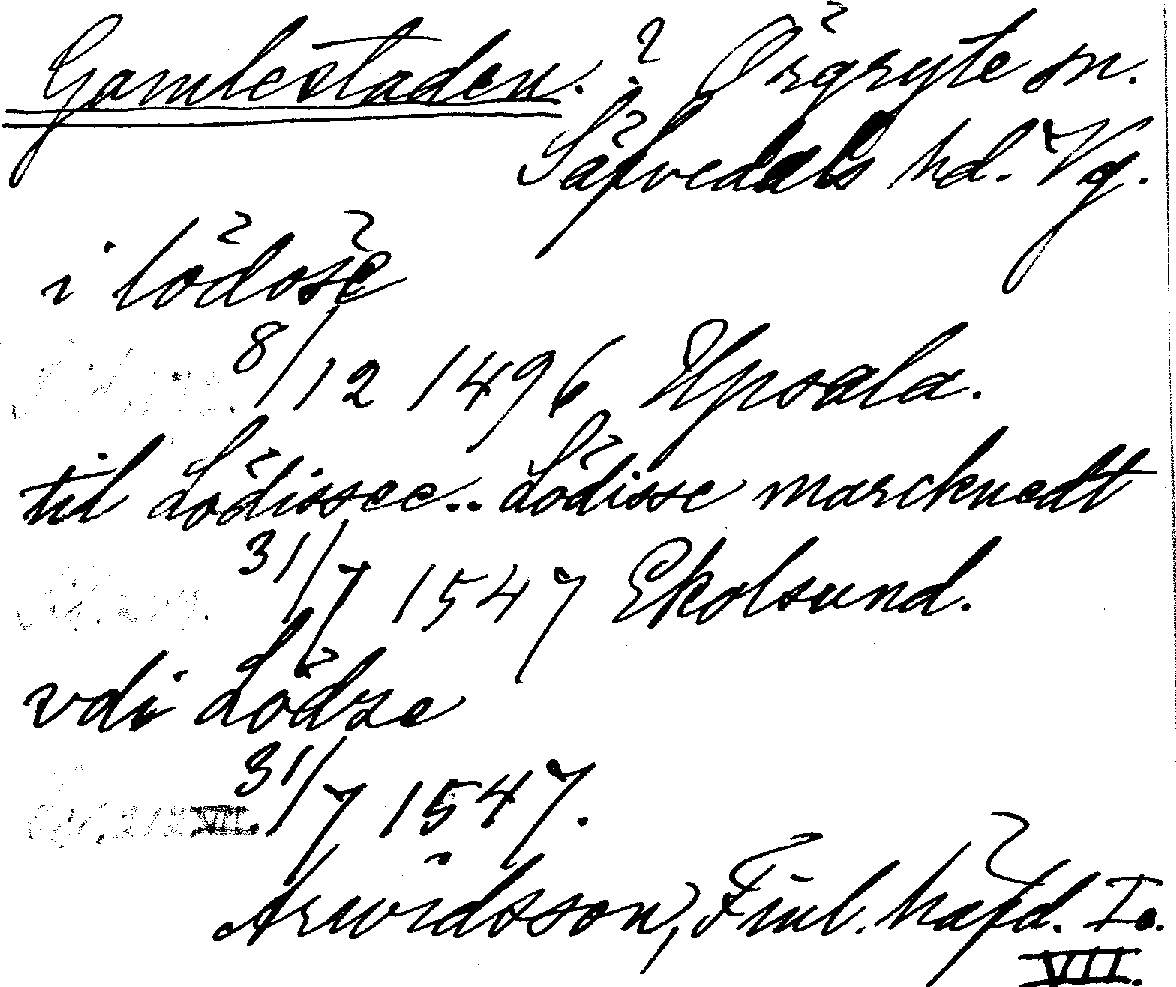 Gamlestaden. ? Örgryte sn.
Säfvedals hd. Vg.
i lödöse
8/12 1496 Upsala.
til Lödissee.. Lödisse marcknedt
31/7 1547 Ekolsund.
vdi Lödze
VII. 31/7 1547.
Arwidsson, Finl. häfd. I.
VII.